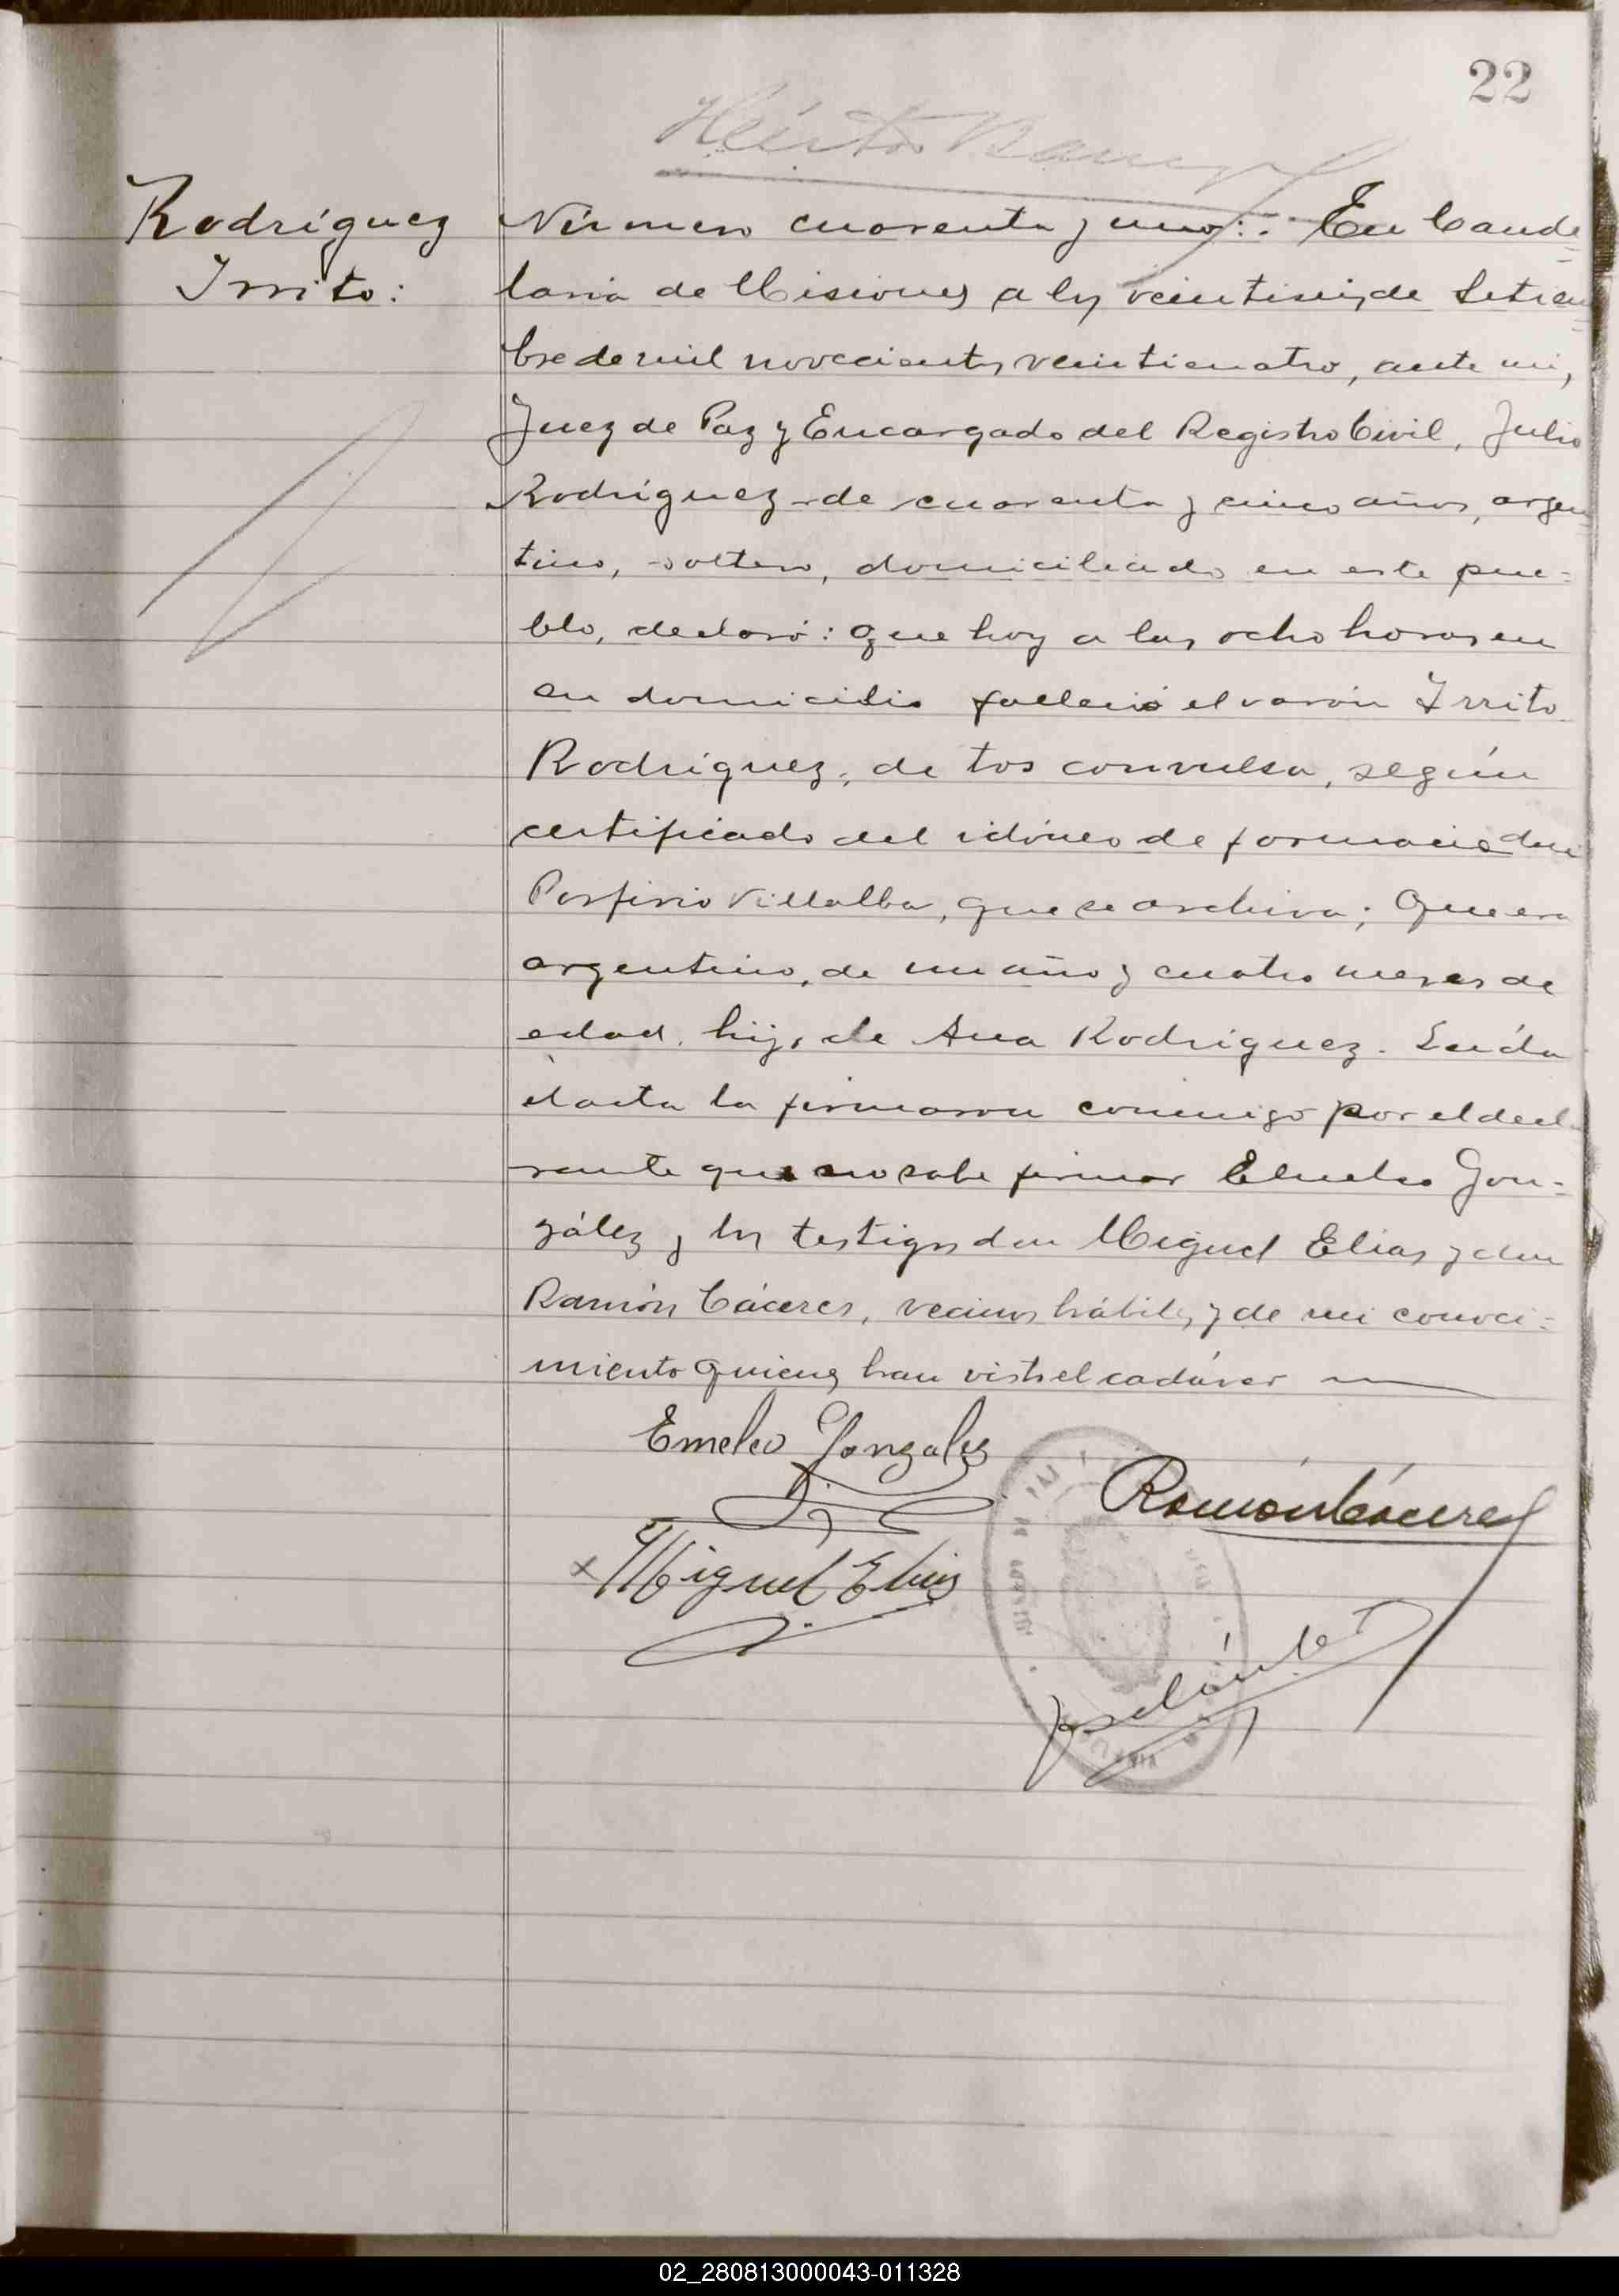 22
Rodríguez
Irrito:
Número cuarenta y uno: En Cande=
laria de Misiones a los veintiseis de Setiem=
bre de mil novecientos veinticuatro, ante mi,
Juez de Paz y Encargado del Registro Civil, Julio
Rodríguez de cuarenta y cinco años, argen
tino, soltero, domiciliado en este pue=
blo, declaró: Que hoy a las ocho horas en
su domicilio falleció el varón Irrito
Rodríguez, de tos convulsa, según
certificado del idóneo de farmacia don
Porfirio Villalba, que se archiva; Que era
argentino, de un año y cuatro meses de
edad, hijo de Ana Rodríguez. Leída
el acta la firmaron conmigo por el decla
rante que no sabe firmar Emeleo Gon=
zález y los testigos don Miguel Elias y don
Ramón Cáceres, vecinos hábiles y de mi conoci=
miento quienes han visto el cadáver
Emeleo Gonzalez
Ramón Cáceres
x Miguel Elias